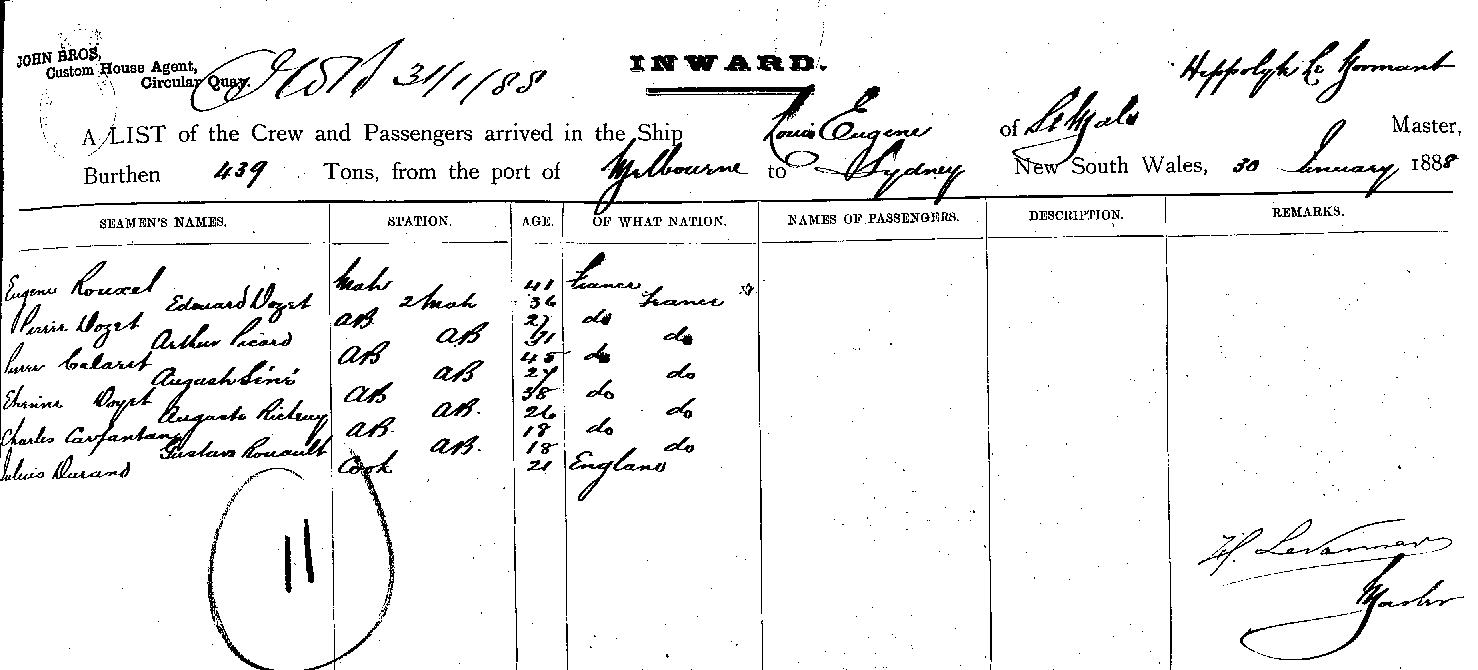 JOHN BROS,
Custom House Agent,
Circular Quay.
31/1/88
INWARD.
Hippolyte Le
A LIST of the Crew and Passengers arrived in the Ship Louis Eugene of St Malo Master,
Burthen 439 Tons, from the port of Melbourne to Sydney New South Wales, 30 January 1888
SEAMEN'S NAMES. STATION. AGE. OF WHAT NATION. NAMES OF PASSENGERS. DESCRIPTION. REMARKS.
Eugene Rouxel Mate 41 France
Edouard Dozet 2 Mate 36 France
Pierre Dozet AB 27 do
Arthur Picard AB 31 do
Pierre AB 45 do
Auguste AB 27 do
Etienne AB 38 do
Auguste AB. 26 do
Charles Carfantan AB. 18 do
Gustave Rouault AB. 18 do
Julius Durand Cook 21 England
11
H.
Master